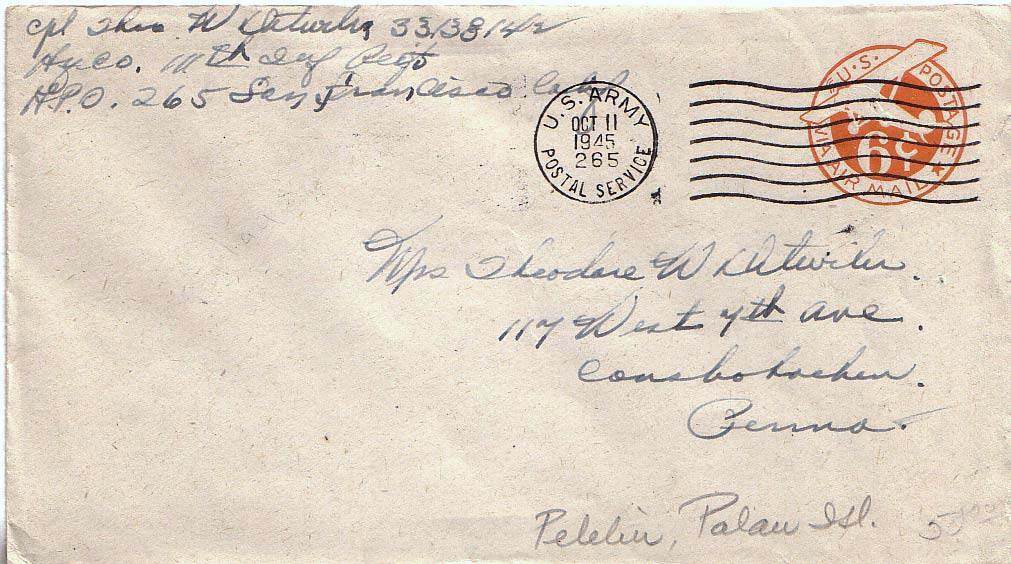 Cpl Theo W Detwiler 33138142
Hqco. 111th Inf Regt
A.P.O. 265 San Francisco Calif
U.S. ARMY
OCT 11
1945
265
POSTAL SERVICE
U.S. POSTAGE
6¢
VIA AIR MAIL
Mrs Theodore W Detwiler.
117 West 7th Ave.
Conshohocken.
Penna.
Peleliu, Palau Isl.